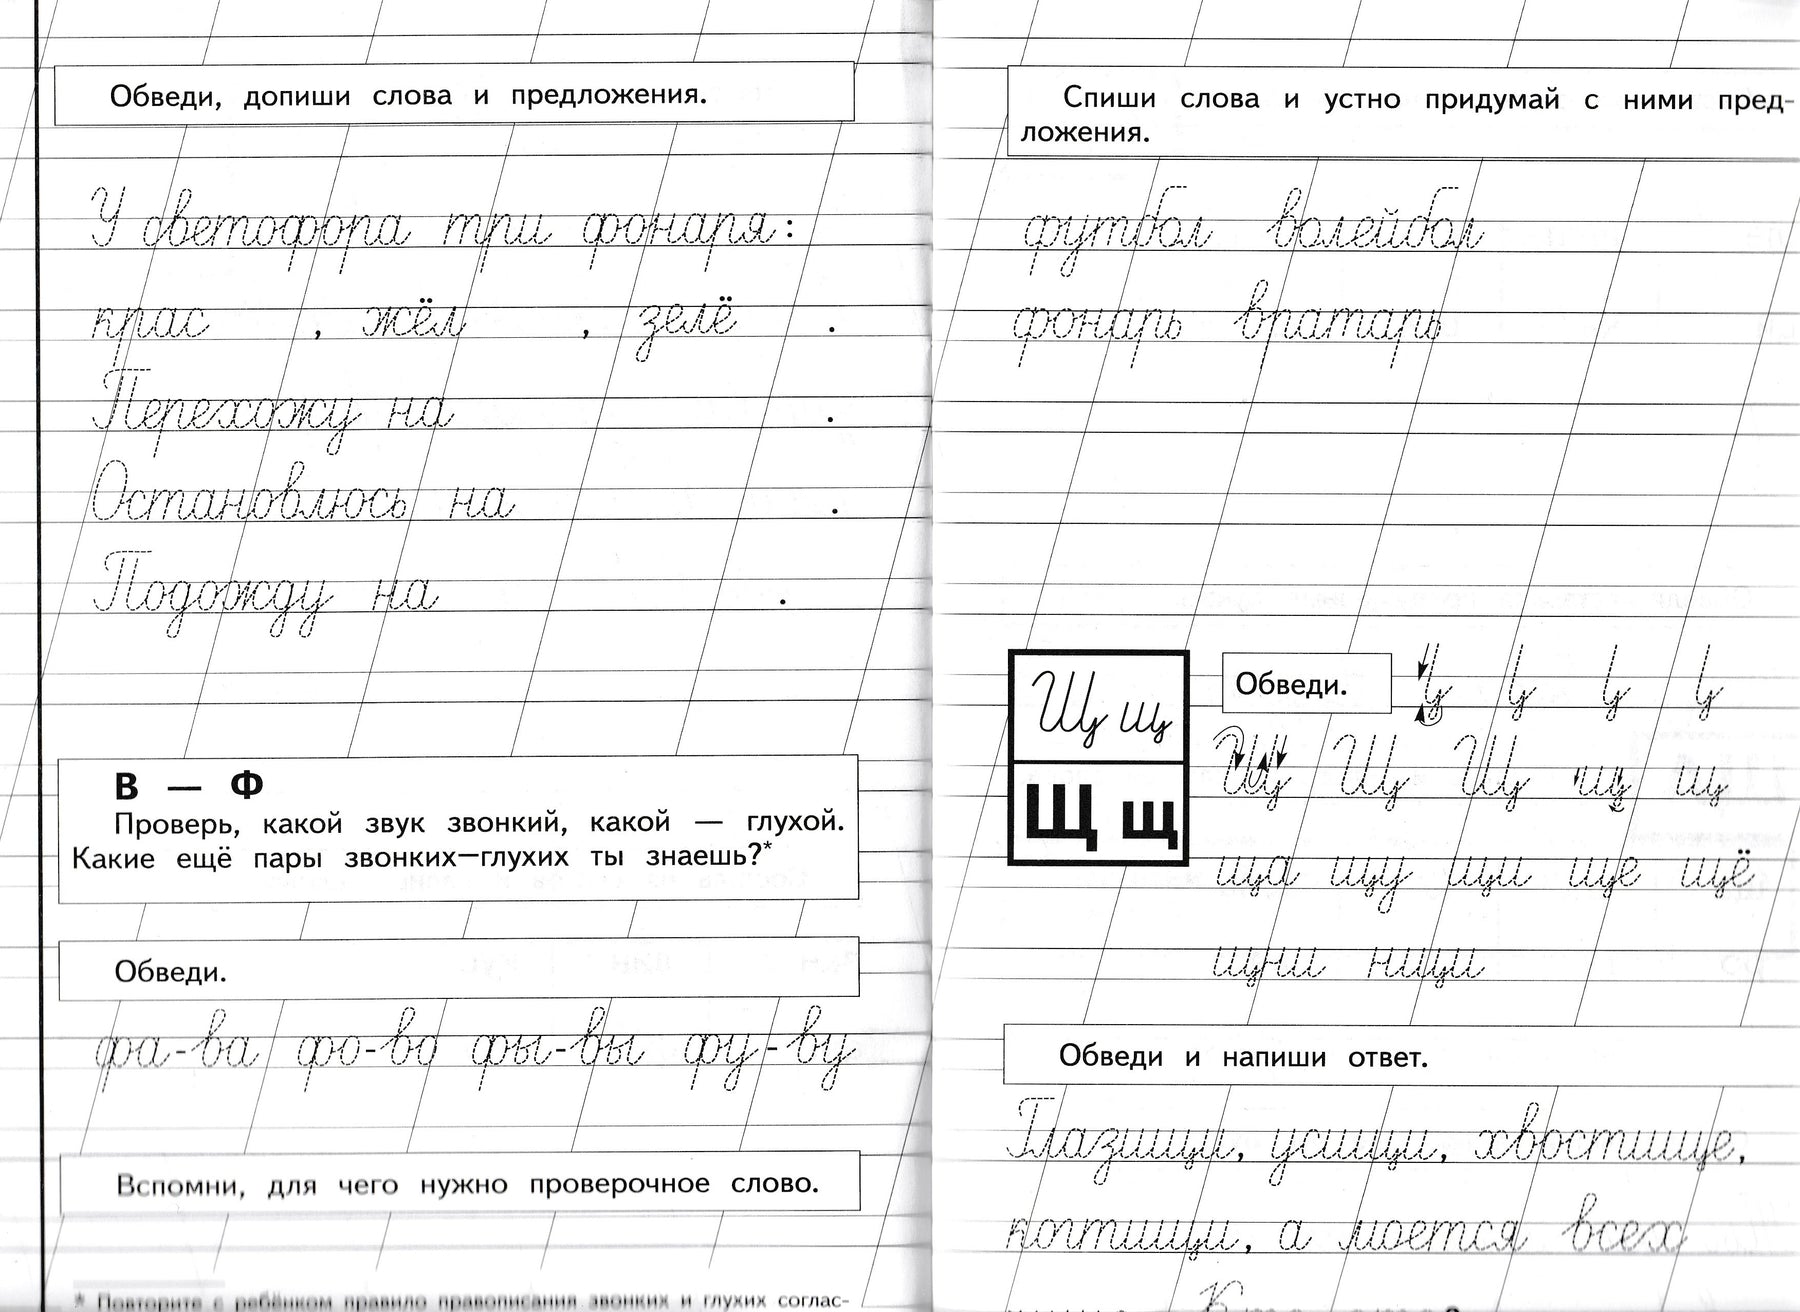 Обведи, допиши слова и предложения.
У светофора три фонаря:
крас , жёл , зелё .
Перехожу на .
Остановлюсь на .
Подожду на .
В — Ф
Проверь, какой звук звонкий, какой — глухой.
Какие ещё пары звонких—глухих ты знаешь?*
Обведи.
фа-ва фо-во фы-вы фу-ву
Вспомни, для чего нужно проверочное слово.
* Повторите с ребёнком правило правописания звонких и глухих соглас-
Спиши слова и устно придумай с ними пред-
ложения.
футбол волейбол
фонарь вратарь
Щ щ
Щ щ
Обведи.
Щ Щ Щ щ щ
ща щу щи ще щё
щни нищи
Обведи и напиши ответ.
Глазищи, усищи, хвостище,
когтищи, а моется всех